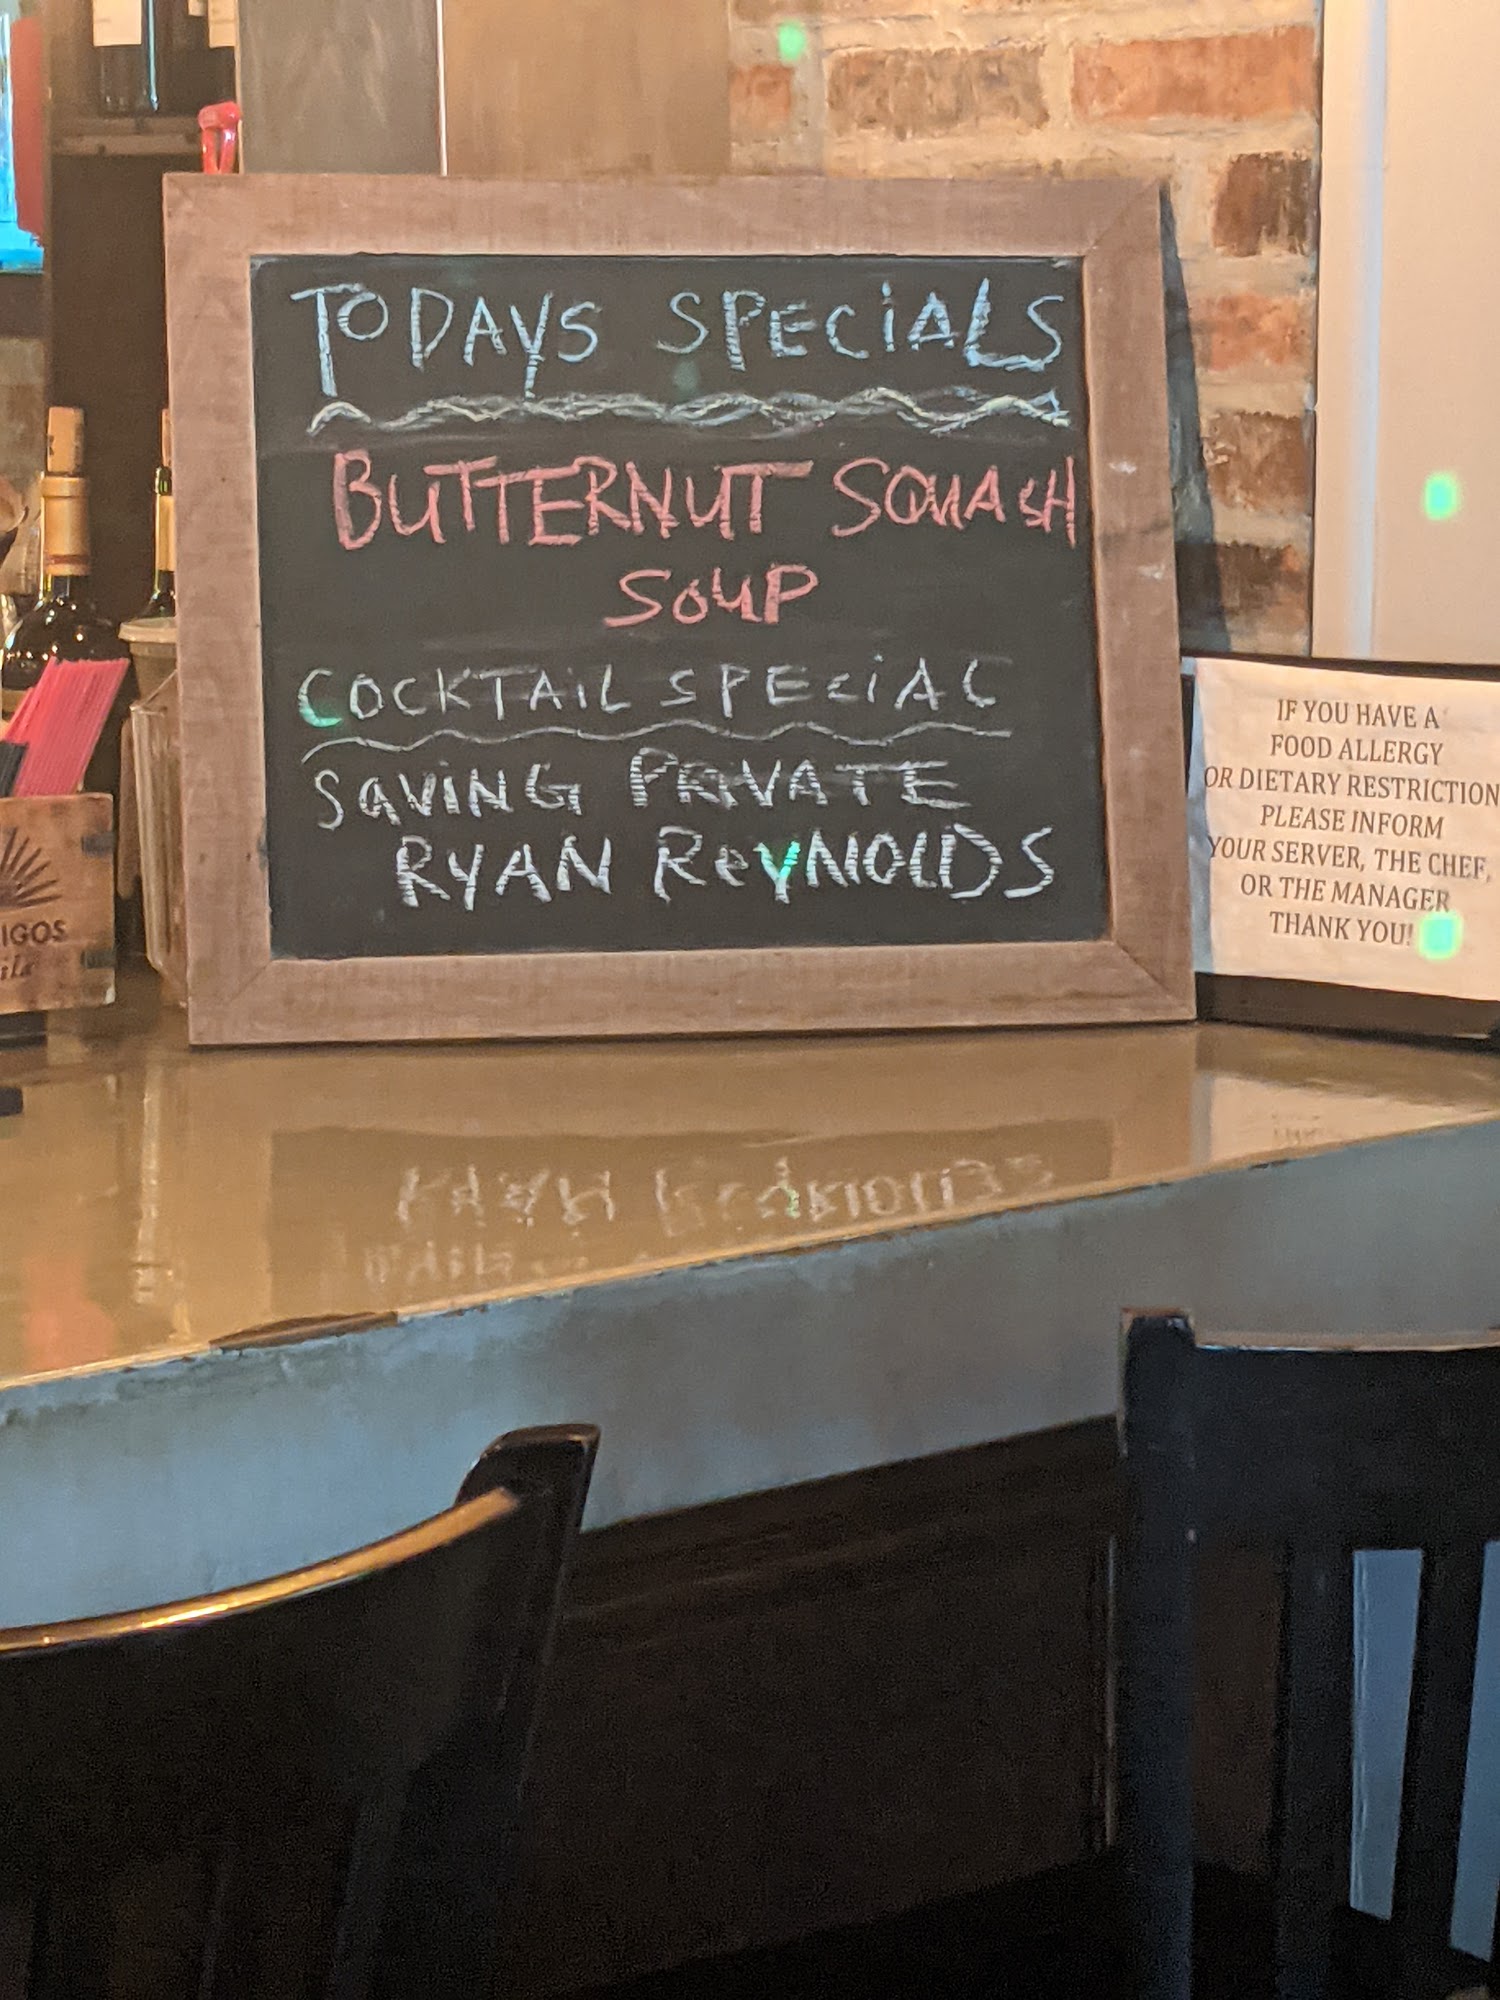 TODAYS SPECIALS
BUTTERNUT SQUASH
SOUP
COCKTAIL SPECIAL
SAVING PRIVATE
RYAN REYNOLDS
IF YOU HAVE A
FOOD ALLERGY
OR DIETARY RESTRICTION
PLEASE INFORM
YOUR SERVER, THE CHEF,
OR THE MANAGER
THANK YOU!
IGOS